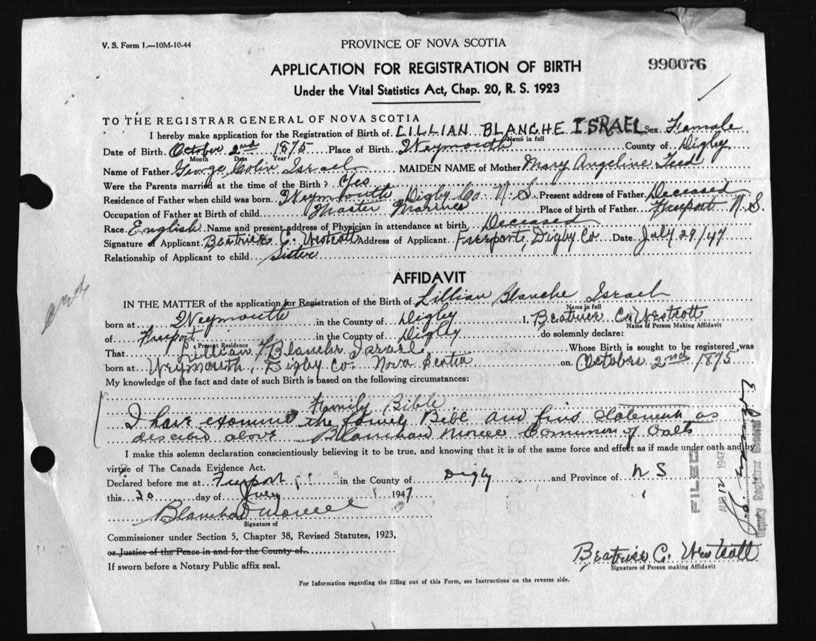 V. S. Form 1.—10M-10-44
PROVINCE OF NOVA SCOTIA
990076
APPLICATION FOR REGISTRATION OF BIRTH
Under the Vital Statistics Act, Chap. 20, R. S. 1923
TO THE REGISTRAR GENERAL OF NOVA SCOTIA
I hereby make application for the Registration of Birth of LILLIAN BLANCHE ISRAEL Sex Female
Name in full
Date of Birth October 2nd 1875 Place of Birth Weymouth County of Digby
Month Date Year
Name of Father George Colin Israel MAIDEN NAME of Mother Mary Angeline Teed
Were the Parents married at the time of the Birth? Yes
Residence of Father when child was born Weymouth Digby Co N.S. Present address of Father Deceased
Occupation of Father at Birth of child Master Mariner Place of birth of Father Freeport N.S.
Race English Name and present address of Physician in attendance at birth Deceased
Signature of Applicant Beatrice C. Westcott Address of Applicant Freeport, Digby Co Date July 29/47
Relationship of Applicant to child Sister
AFFIDAVIT
IN THE MATTER of the application for Registration of the Birth of Lillian Blanche Israel
Name in full
born at Weymouth in the County of Digby I, Beatrice C. Westcott
Name of Person Making Affidavit
of Freeport in the County of Digby do solemnly declare:
Present Residence
That Lillian Blanche Israel Whose Birth is sought to be registered was
born at Weymouth, Digby Co. Nova Scotia on October 2nd 1875
My knowledge of the fact and date of such Birth is based on the following circumstances:
Family Bible
I have examined the family Bible and find statement as
described above Commissioner of Oaths
I make this solemn declaration conscientiously believing it to be true, and knowing that it is of the same force and effect as if made under oath and by
virtue of The Canada Evidence Act.
Declared before me at Freeport in the County of Digby and Province of N S
this day of 1947
Signature of
Commissioner under Section 5, Chapter 38, Revised Statutes, 1923,
or Justice of the Peace in and for the County of
If sworn before a Notary Public affix seal.
Beatrice C. Westcott
Signature of Person making Affidavit
For Information regarding the filling out of this Form, see Instructions on the reverse side.
FILED
12 1947
Deputy Registrar General